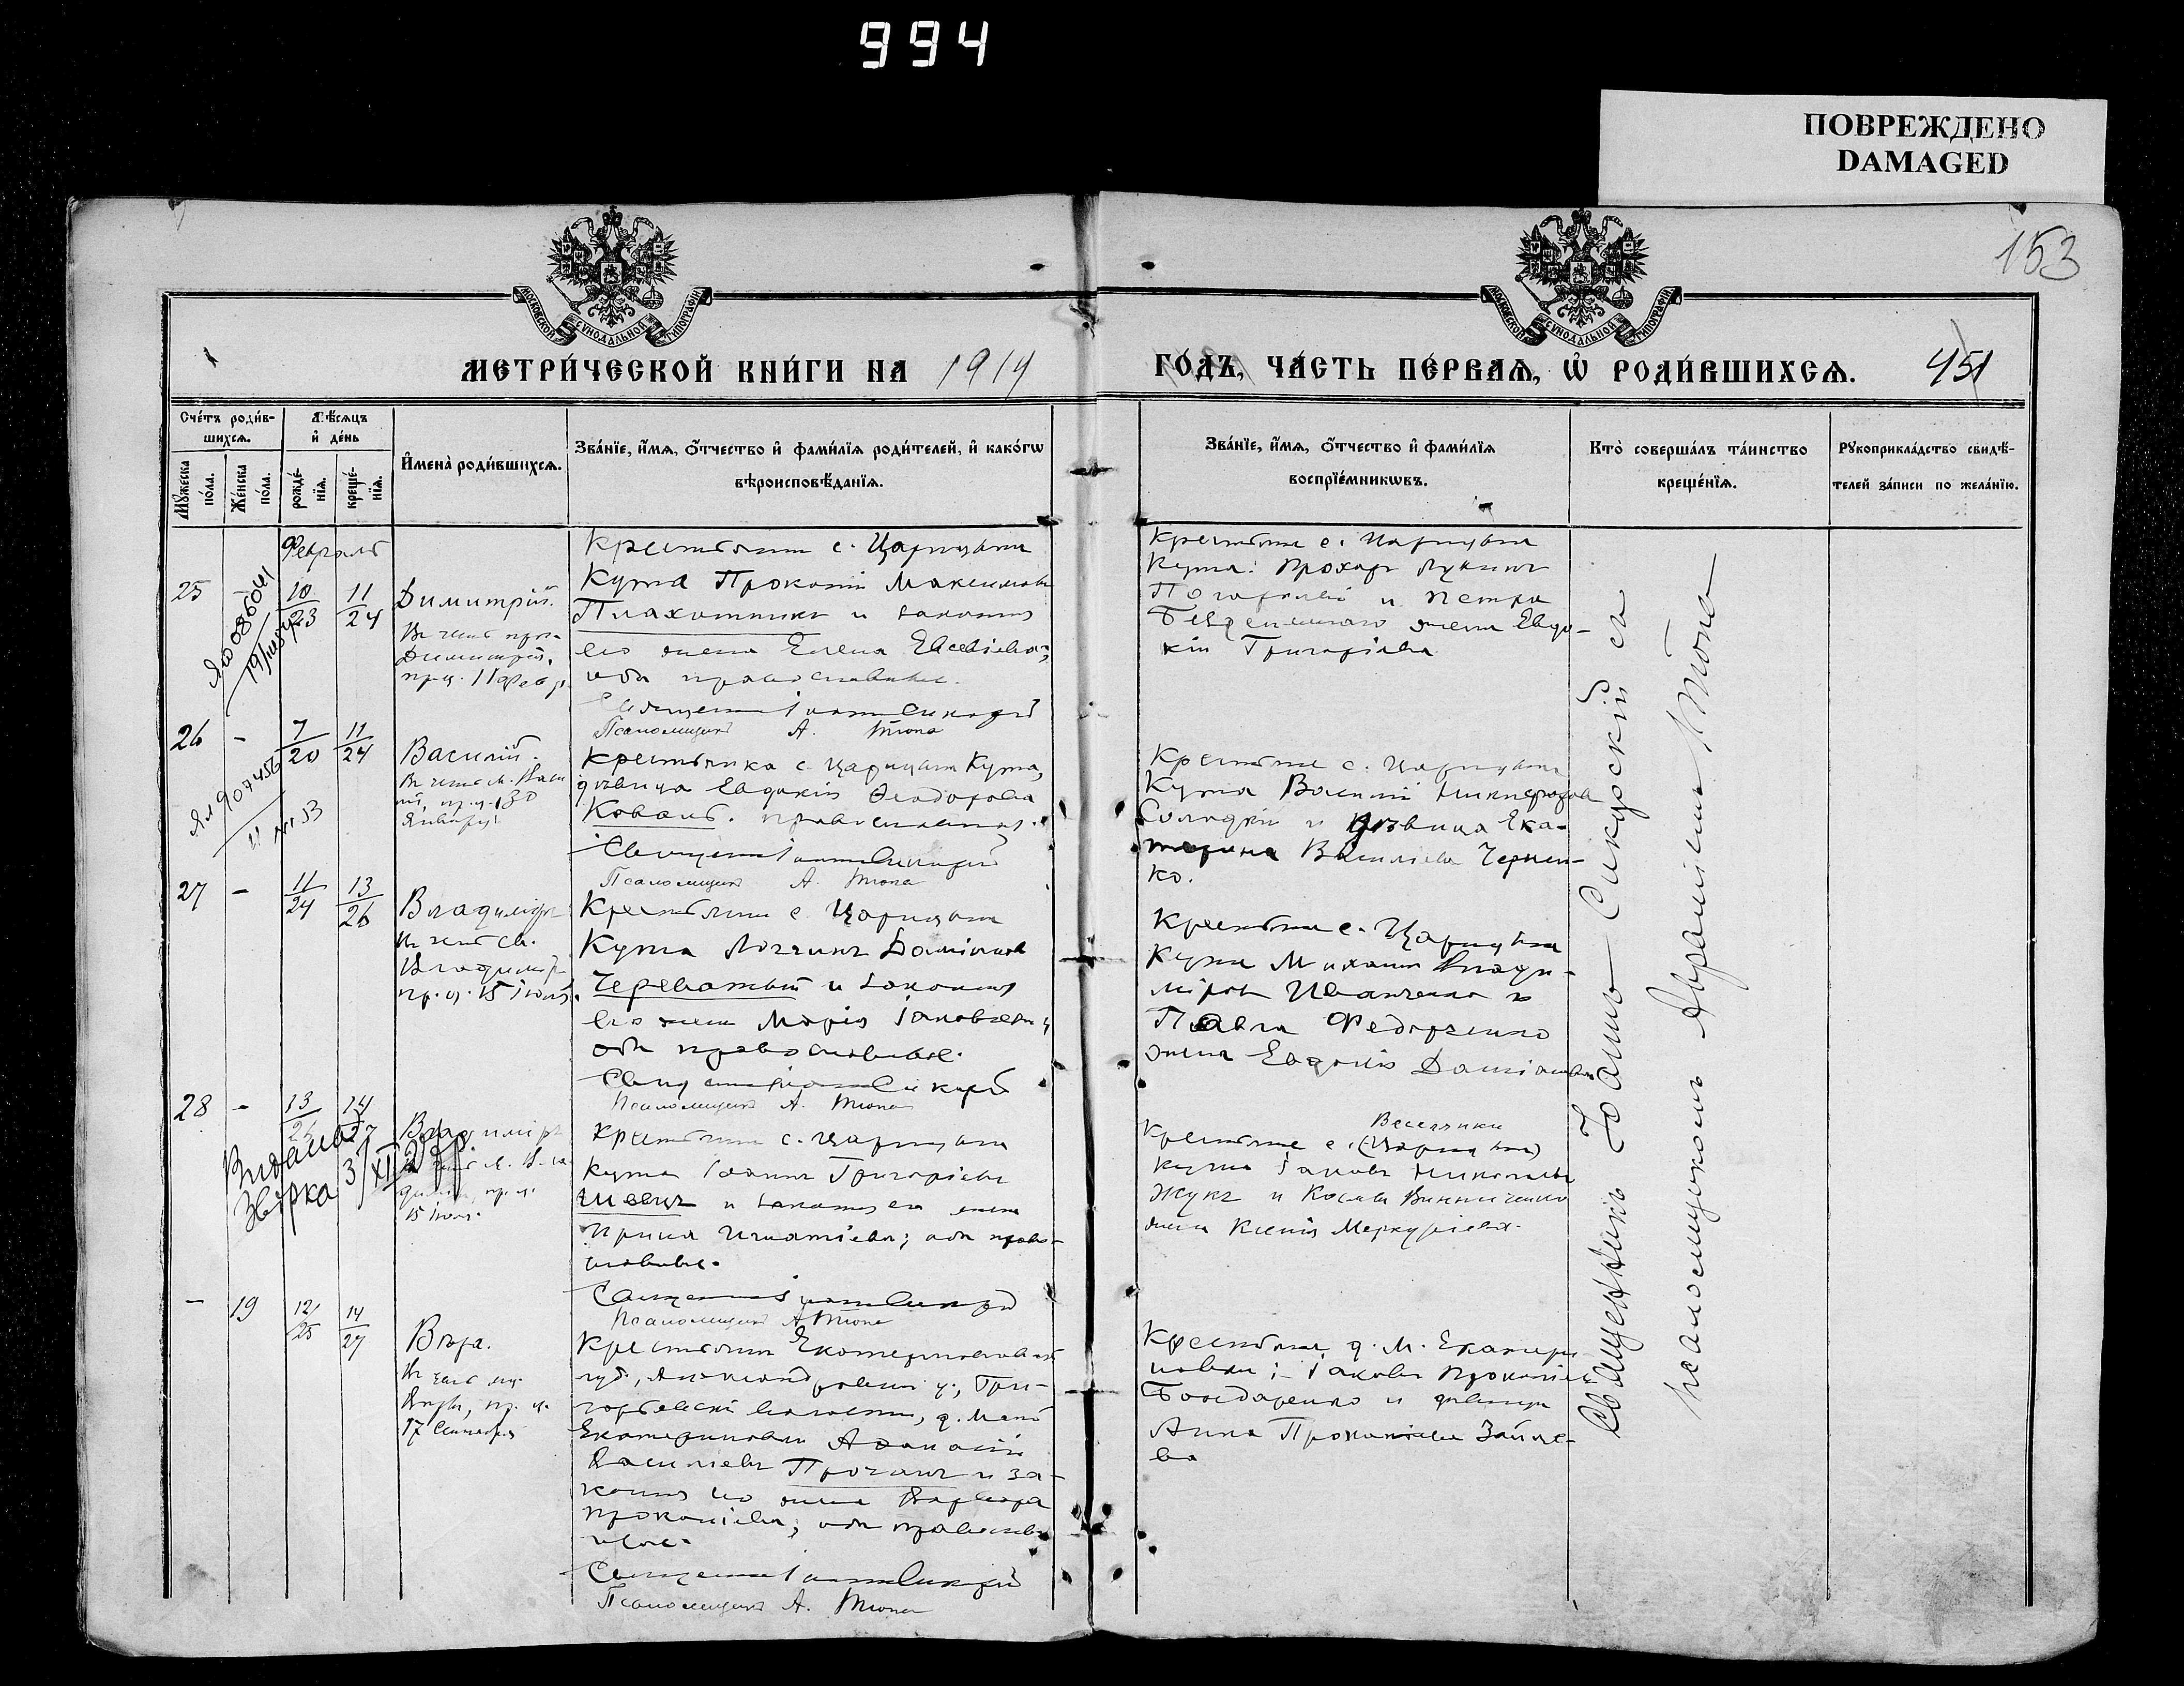 994
ПОВРЕЖДЕНО
DAMAGED
153
МОСКОВСКОЙ СѴНОДАЛЬНОЙ ТИПОГРАФІИ
МОСКОВСКОЙ СѴНОДАЛЬНОЙ ТИПОГРАФІИ
МЕТРИ́ЧЕСКОЙ КНИ́ГИ НА 1919
ГО́ДЪ, ЧА́СТЬ ПЕ́РВАѦ, Ѡ РОДИ́ВШИХСѦ. 451
Сче́тъ роди́в-
шихсѧ.
Мꙋжеска по́ла.
Же́нска по́ла.
Мѣ́сѧцъ
и҆ де́нь
рожде́-нїѧ.
креще́-нїѧ.
И҆мена̀ роди́вшихсѧ.
Зва́нїе, и҆́мѧ, ѻ҆́тчество и҆ фами́лїѧ роди́телей, и҆ како́гѡ
вѣроисповѣ́данїѧ.
Зва́нїе, и҆́мѧ, ѻ҆́тчество и҆ фами́лїѧ
воспрїе́мникѡвъ.
Кто̀ соверша́лъ та́инство
креще́нїѧ.
Рꙋкоприкла́дство свидѣ́-
телей за́писи по жела́нїю.
Февраль
25 - 10/23 11/24
Димитрій.
Въ честь
Димитрія,
пр. ц. 11 Февр.
Крестьянин с. Царицына
Кута Прокопій Максимовъ
Плахотникъ и законная
его жена Елена Евсевіева;
оба православные.
Священник Іоаннъ Сикорскій
Псаломщикъ А. Тюпа
Крестьяне с. Царицына
Кута: Прохоръ Лукинъ
и Петра
жена Евдо-
кія Григоріева
26 - 7/20 11/24
Василій.
Въ честь м. Васи
лія, пр. ц. 30
Января
Крестьянка с. Царицына Кута,
дѣвица Евдокія Ѳеодорова
Коваль. православная.
Священник Іоаннъ Сикорскій
Псаломщикъ А. Тюпа
Крестьяне с. Царицына
Кута Василій Никифоров
и дѣвица Ека-
терина Василіева Чернен-
ко.
27 - 11/24 13/26
Владиміръ
Въ честь св.
Владиміра
пр. ц. 15 Іюля.
Крестьянин с. Царицына
Кута Логгинъ Даміановъ
Череватый и законная
его жена Марія Іаковлева;
оба православные.
Священник Іоаннъ Сикорскій
Псаломщикъ А. Тюпа
Крестьяне с. Царицына
Кута Михаил Влади-
міровъ Иванченко и
Павла Федорченко
жена Евдокія Даміанова
28 - 13/26 14/27
Владиміръ
15 Іюля.
Видана
Звірка 3/XI 29 р
Крестьянин с. Царицына
Кута Іоаннъ Григоріевъ
Швецъ и законная его жена
Ирина Игнатіева; оба право-
славные.
Священник Іоаннъ Сикорскій
Псаломщикъ А. Тюпа
Веселянки
Крестьяне с. (Царицына)
Кута Іаковъ Николаевъ
Жукъ и Косьмы Винниченко
жена Ксенія Меркуріева.
- 19 12/25 14/27
Вѣра.
Въ честь мц.
Вѣры, пр. ц.
17 Сентября
Крестьянин Екатеринославской
губ., Александровского у., Гри-
горьевской волости, д. Мало
Екатериновки Аѳанасій
Василіевъ Прочанъ и за-
конная его жена Варвара
Прокопіева; оба православ-
ные.
Священник Іоаннъ Сикорскій
Псаломщикъ А. Тюпа
Крестьяне д. М. Екатери-
новки; Іаковъ Прокопіевъ
Бондаренко и дѣвица
Анна Прокопіева Зайце-
ва
Священникъ Іоаннъ Сикорскій съ
псаломщикомъ Авраміемъ Тюпа